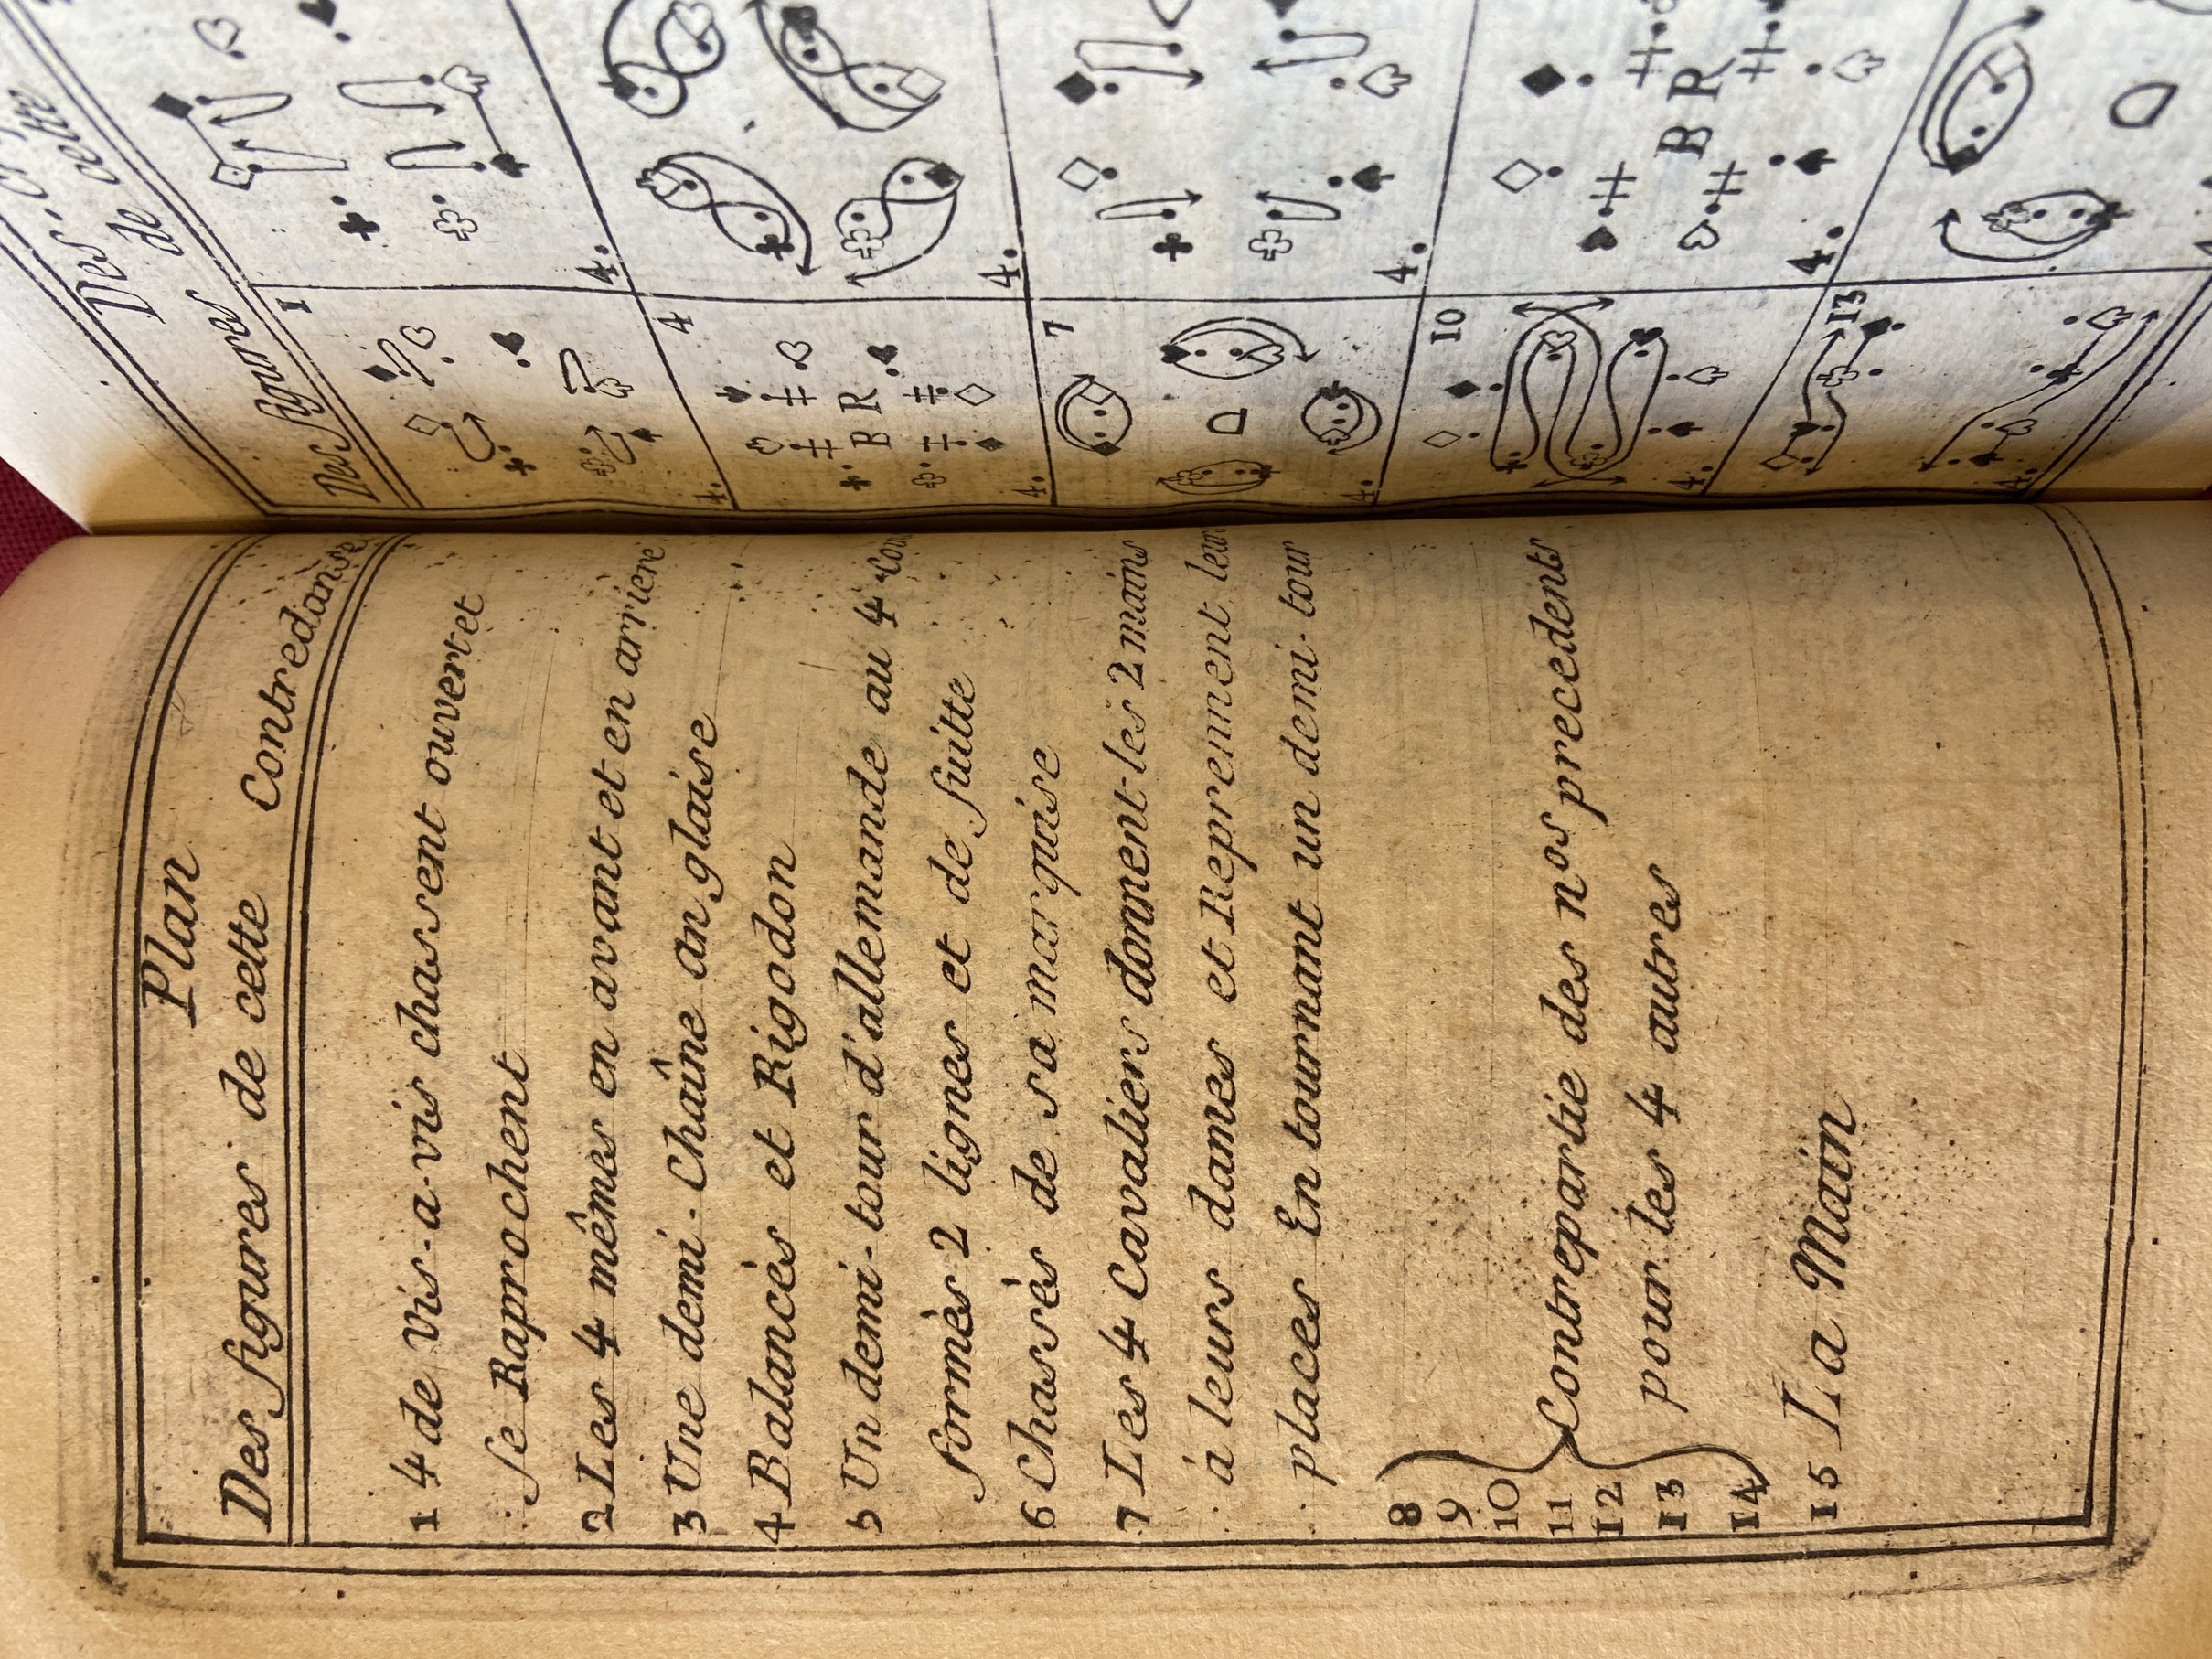 Plan
Des figures de cette Contredanse
1 4 de vis-a-vis chassent ouvert et
se Raprochent
2 Les 4 mêmes en avant et en arriere
3 Une demi-Chaîne anglaise
4 Balancès et Rigodon
5 Un demi-tour d'allemande au 4
formès 2 lignes et de suitte
6 Chassès de sa marquise
7 Les 4 Cavaliers donnent les 2 mains
à leurs dames et Reprennent leur
places En tournant un demi-tour
8
9
10
11 Contrepartie des nos precedents
12 pour les 4 autres
13
14
15 La Main
Des figures
de cette
Des figures
1
4.
4.
4
B R
4.
4.
7
4.
4.
10
B R
4.
4.
13
4.